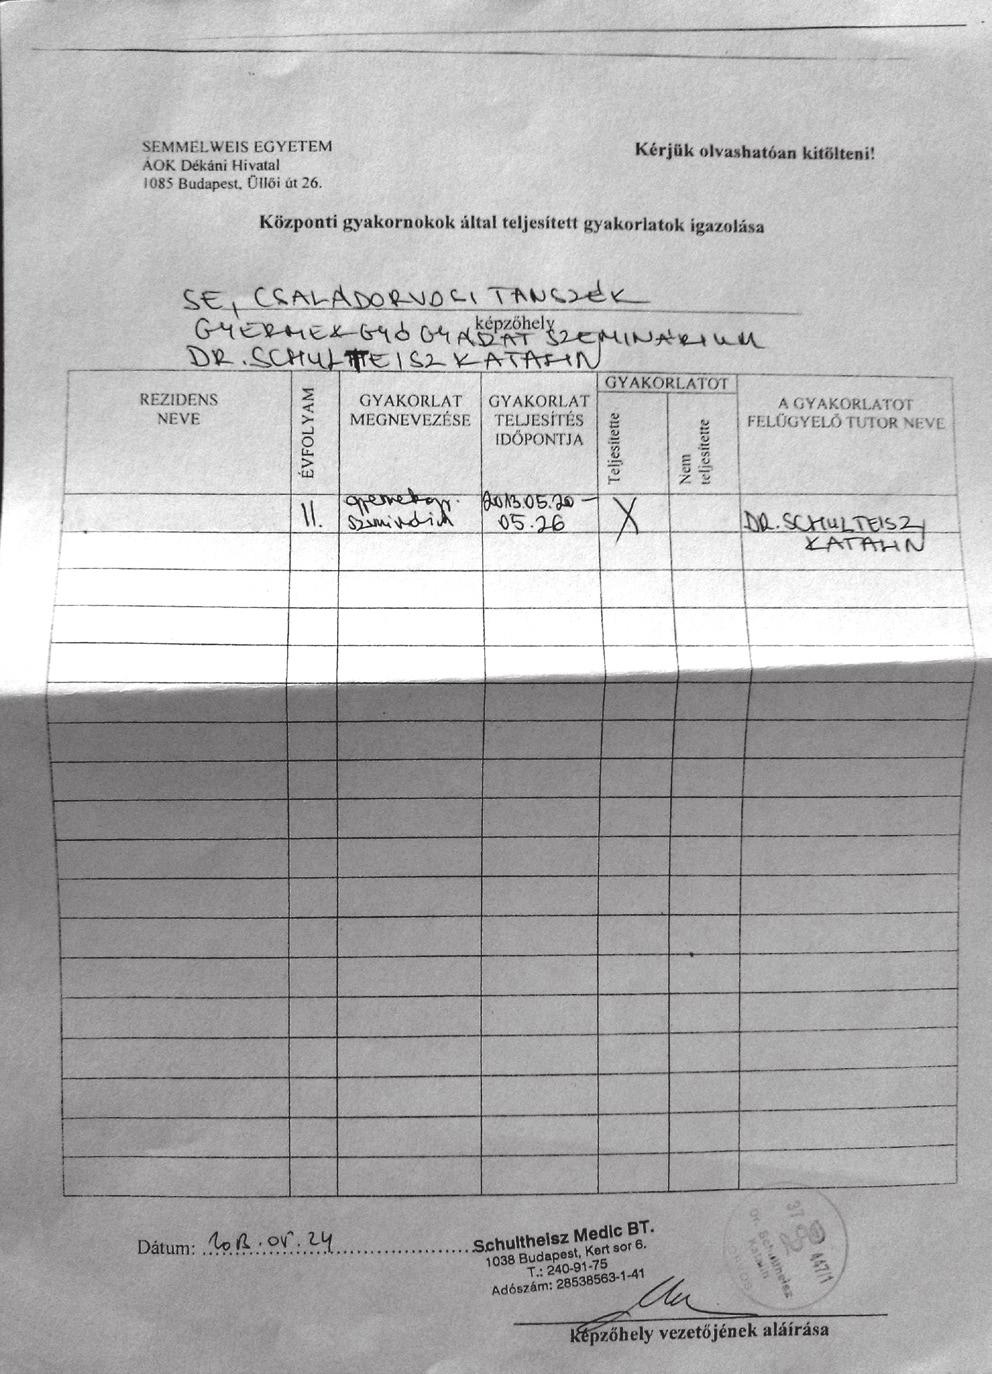 SEMMELWEIS EGYETEM
ÁOK Dékáni Hivatal
1085 Budapest, Üllői út 26.
Kérjük olvashatóan kitölteni!
Központi gyakornokok által teljesített gyakorlatok igazolása
SE, CSALÁDORVOSI TANSZÉK
képzőhely
GYERMEKGYÓGYÁSZAT SZEMINÁRIUM
DR. SCHULTEISZ KATALIN
REZIDENS NEVE
ÉVFOLYAM
GYAKORLAT MEGNEVEZÉSE
GYAKORLAT TELJESÍTÉS IDŐPONTJA
GYAKORLATOT
Teljesítette
Nem teljesítette
A GYAKORLATOT FELÜGYELŐ TUTOR NEVE
II.
2013.05.20 –
05.26
X
DR. SCHULTEISZ
KATALIN
Dátum: 2013.05.24
Schultheisz Medic BT.
1038 Budapest, Kert sor 6.
T.: 240-91-75
Adószám: 28538563-1-41
Dr. Schultheisz
Katalin
képzőhely vezetőjének aláírása